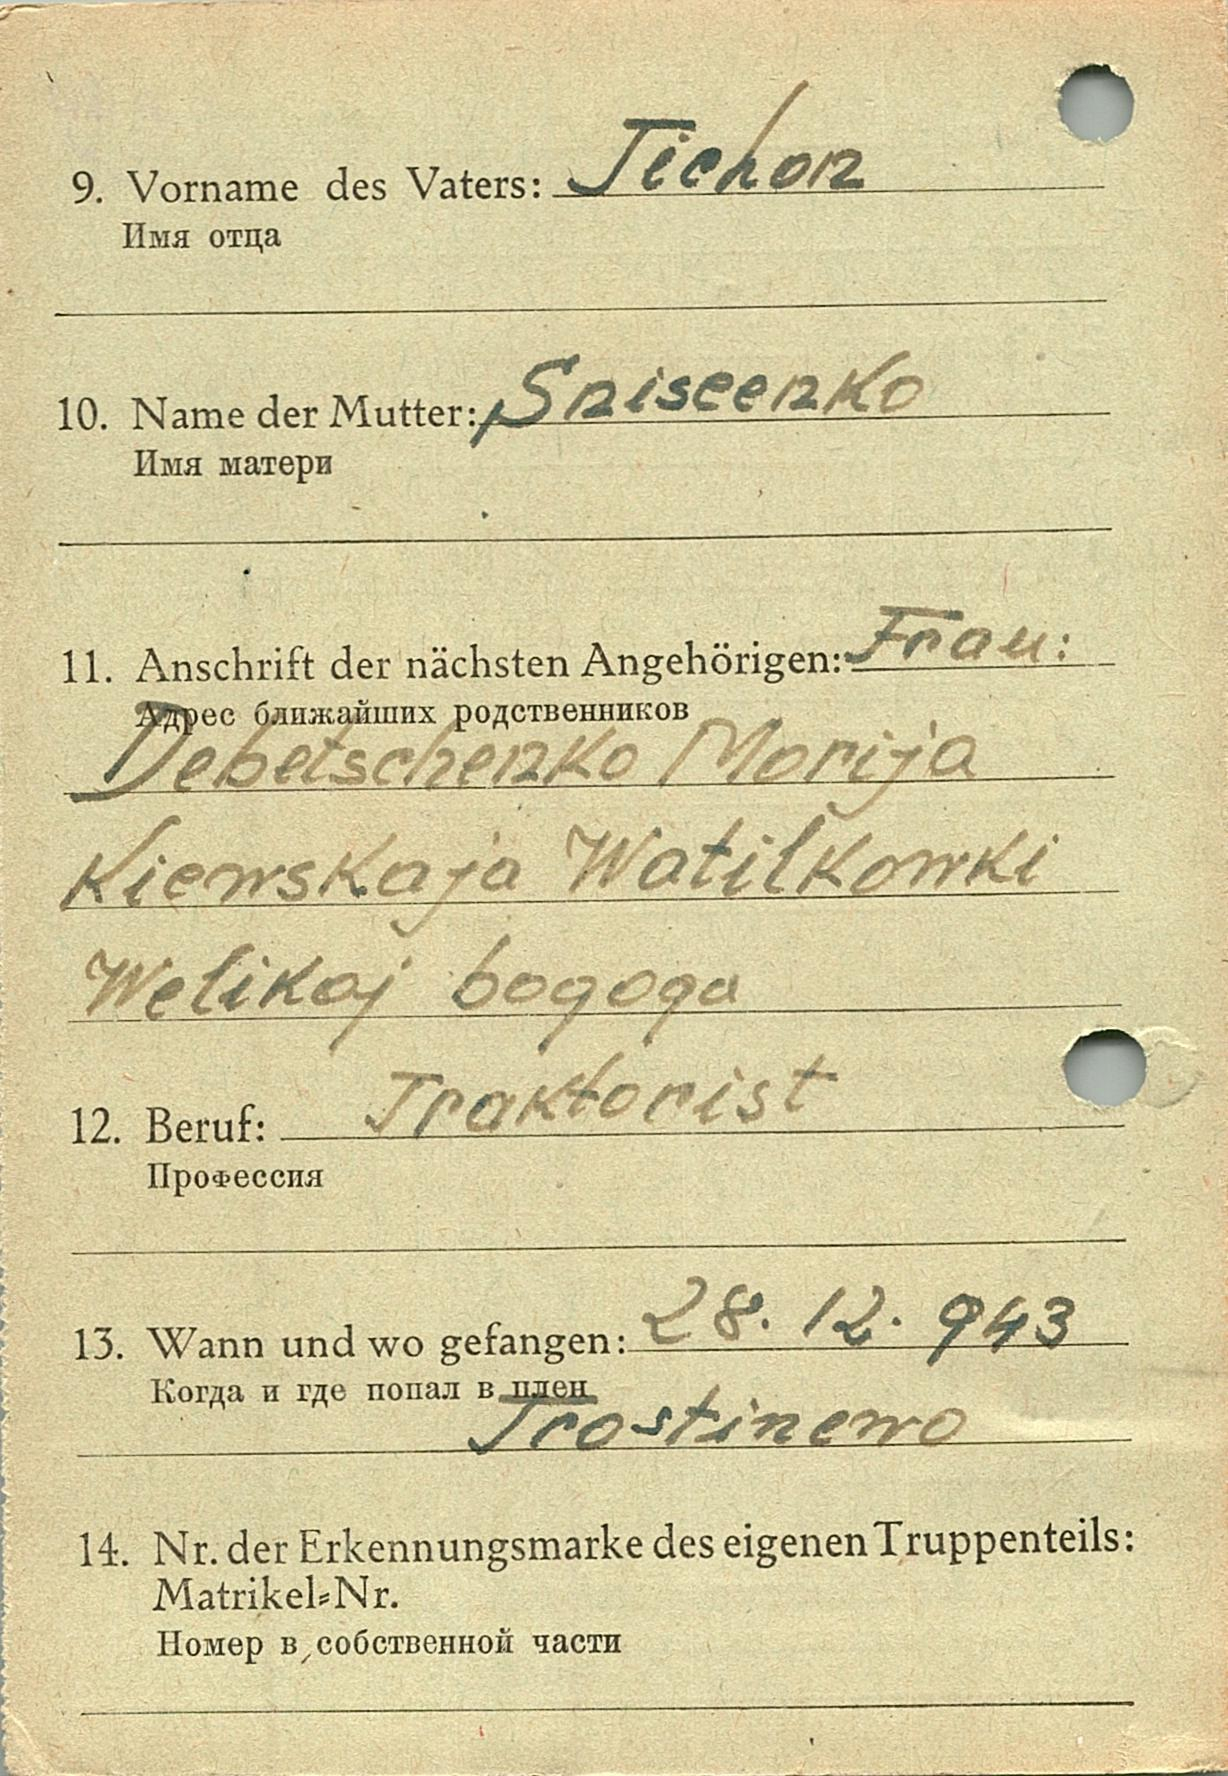 9. Vorname des Vaters: Tichon
Имя отца
10. Name der Mutter: Sniseenko
Имя матери
11. Anschrift der nächsten Angehörigen: Frau:
Адрес ближайших родственников
Debetschenko Marija
Kiewskaja Watilkowki
Welikaj bogoga
12. Beruf: Traktorist
Профессия
13. Wann und wo gefangen: 28. 12. 943
Когда и где попал в плен
Trostinewo
14. Nr. der Erkennungsmarke des eigenen Truppenteils:
Matrikel=Nr.
Номер в собственной части